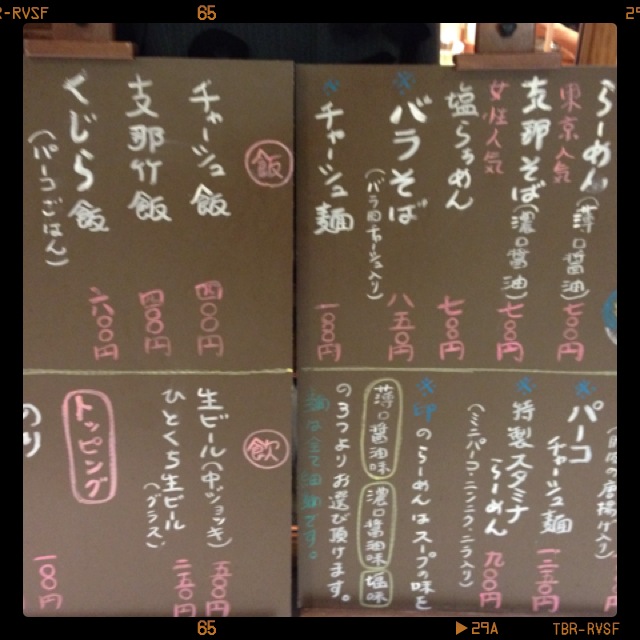 R-RVSF
65
29
らーめん(薄口醤油) 七〇〇円
東京人気
支那そば(濃口醤油) 七〇〇円
女性人気
塩らぁめん 七〇〇円
※バラそば
(バラ肉チャーシュー入り) 八五〇円
※チャーシュー麺
パーコー
チャーシュー麺 一二五〇円
※特製スタミナ
らーめん 九〇〇円
(ミニパーコ・ニンニク・ニラ入り)
※印のらーめんはスープの味を
薄口醤油味 濃口醤油味 塩味
の3つよりお選び頂けます。
飯
チャーシュー飯 四〇〇円
支那竹飯 四〇〇円
くじら飯 六〇〇円
(パーコーごはん)
飲
生ビール(中ジョッキ) 五〇〇円
ひとくち生ビール
(グラス) 二五〇円
トッピング
のり 一〇〇円
65
29A
TBR-RVSF